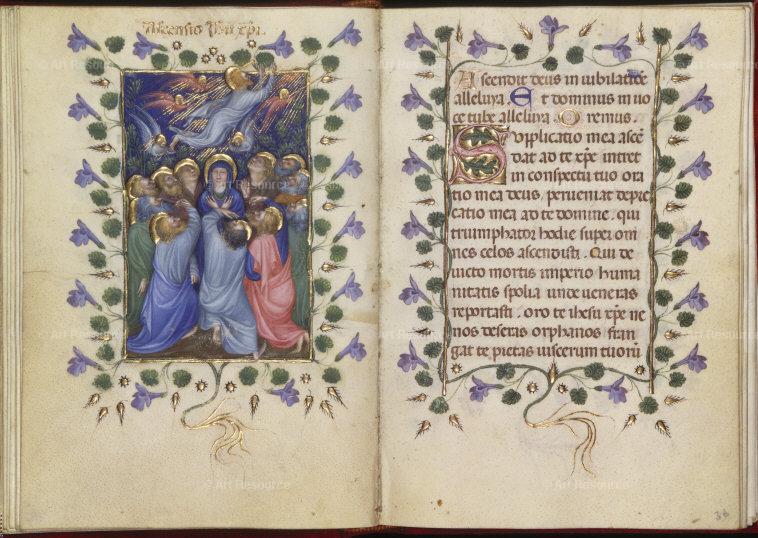 Ascensio
Ascendit deus in iubilatiõe
alleluya. Et dominus in uo
ce tube alleluya Oremus.
Supplicatio mea ascẽ
dat ad te xp̃e intret
in conspectu tuo ora
tio mea deus, perueniat depre
catio mea ad te domine. qui
triumphator hodie super om
nes celos ascendisti. Qui de
uicto mortis imperio huma
nitatis spolia unde ueneras
reportasti. oro te ihesu xp̃e ne
nos deseras orphanos fran
gat te pietas uiscerum tuorũ
36
© Art Resource